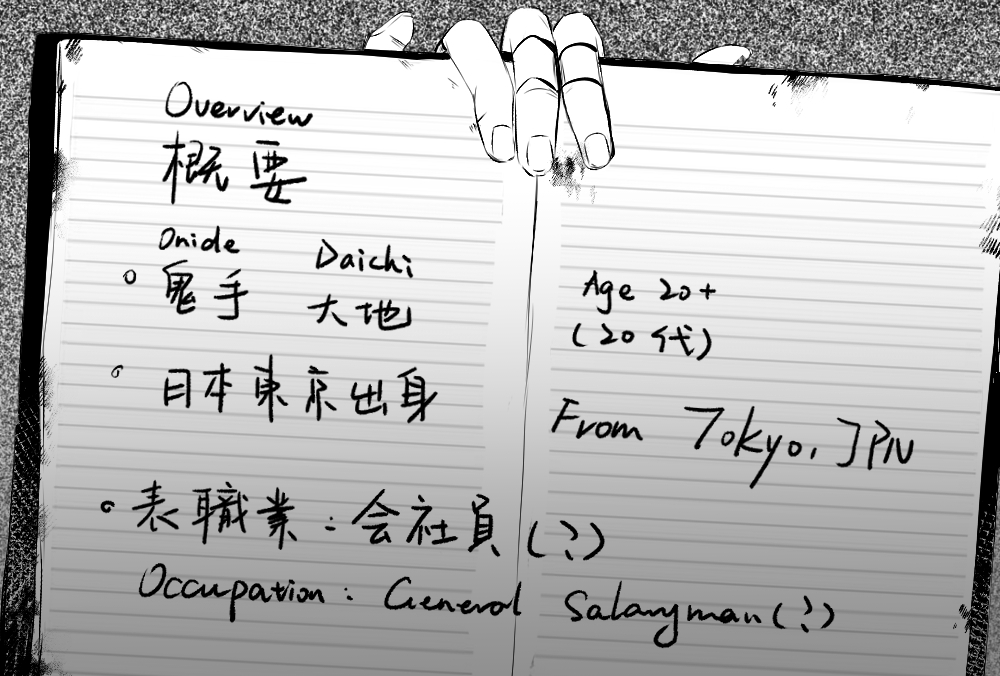 Overview
概要
Onide Daichi
鬼手 大地
Age 20+
(20代)
日本東京出身
From Tokyo, JPN
表職業:会社員(?)
Occupation: General Salaryman(?)